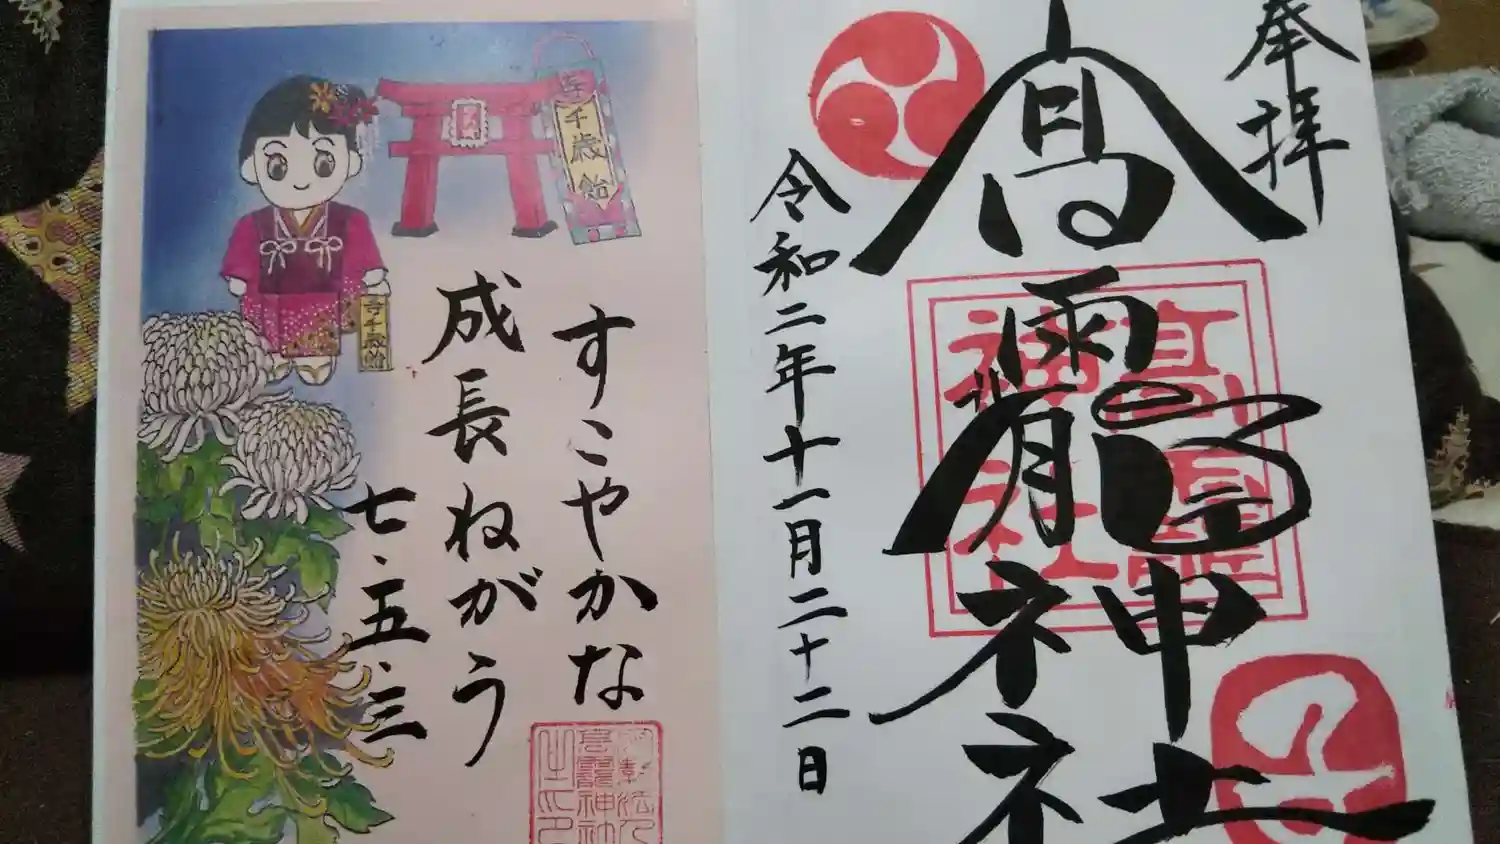 奉拝
髙龗神社
令和二年十一月二十二日
すこやかな
成長ねがう
七・五・三
千歳飴
千歳飴